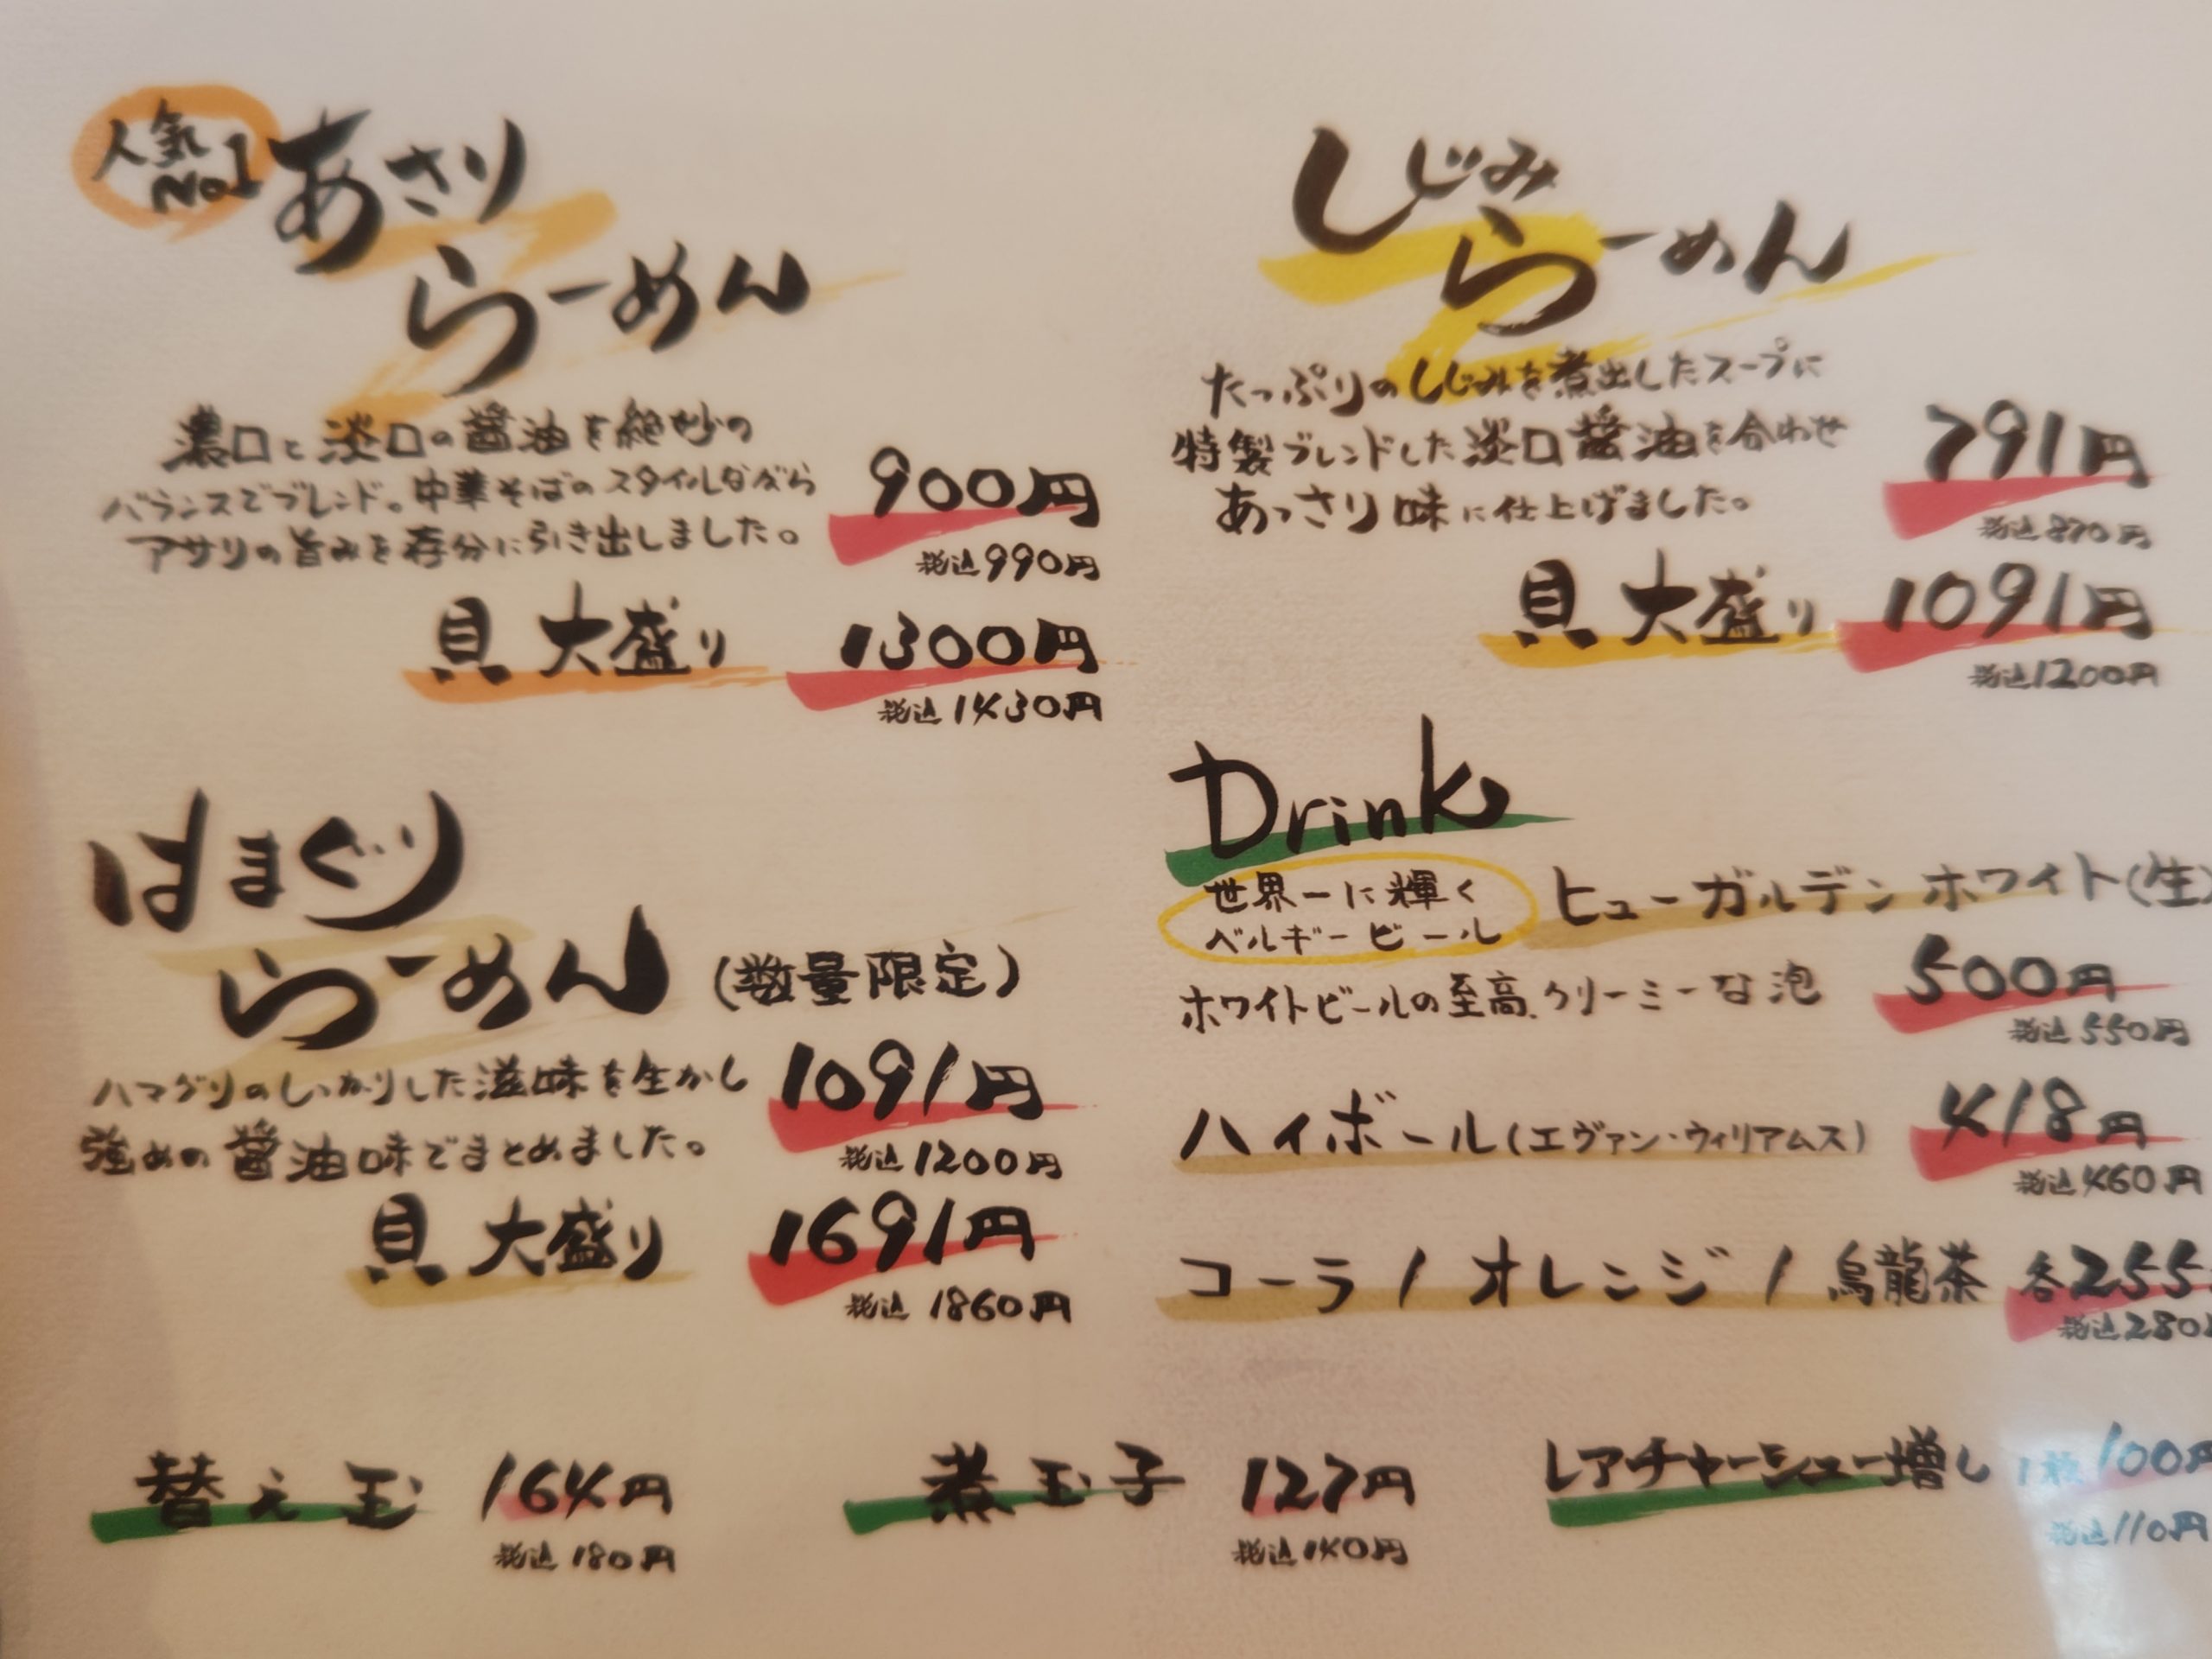 人気
No1
あさり
らーめん
濃口と淡口の醤油を絶妙の
バランスでブレンド。中華そばのスタイルながら
アサリの旨みを存分に引き出しました。
900円
税込990円
貝 大盛り 1300円
税込1430円
はまぐり
らーめん (数量限定)
ハマグリのしっかりした滋味を生かし
強めの醤油味でまとめました。
1091円
税込1200円
貝 大盛り 1691円
税込1860円
しじみ
らーめん
たっぷりのしじみを煮出したスープに
特製ブレンドした淡口醤油を合わせ
あっさり味に仕上げました。
791円
税込870円
貝 大盛り 1091円
税込1200円
Drink
世界一に輝く
ベルギービール
ヒューガルデン ホワイト(生)
ホワイトビールの至高、クリーミーな泡
500円
税込550円
ハイボール(エヴァン・ウィリアムス) 418円
税込460円
コーラ / オレンジ / 烏龍茶 各255
税込280
替え玉 164円
税込180円
煮玉子 127円
税込140円
レアチャーシュー増し 1枚100円
税込110円